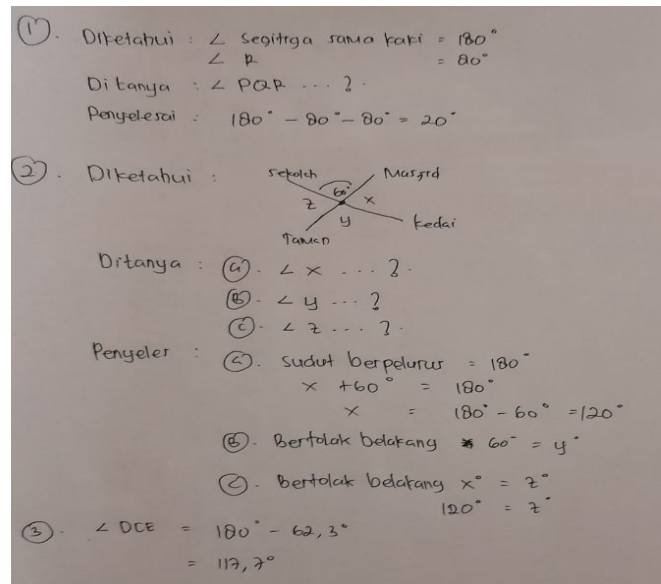 ①. Diketahui : ∠ Segitiga sama kaki = 180°
∠ R = 80°
Ditanya : ∠ PQR ... ?.
Penyelesai : 180° - 80° - 80° = 20°
②. Diketahui :
Sekolah Masjid
60°
z x
y
Kedai
Taman
Ditanya : ⓐ. ∠ x ... ?.
ⓑ. ∠ y ... ?
ⓒ. ∠ z ... ?.
Penyeles : ⓐ. Sudut berpelurus = 180°
x + 60° = 180°
x = 180° - 60° = 120°
ⓑ. Bertolak belakang 60° = y°
ⓒ. Bertolak belakang x° = z°
120° = z°
③. ∠ DCE = 180° - 62,3°
= 117,7°